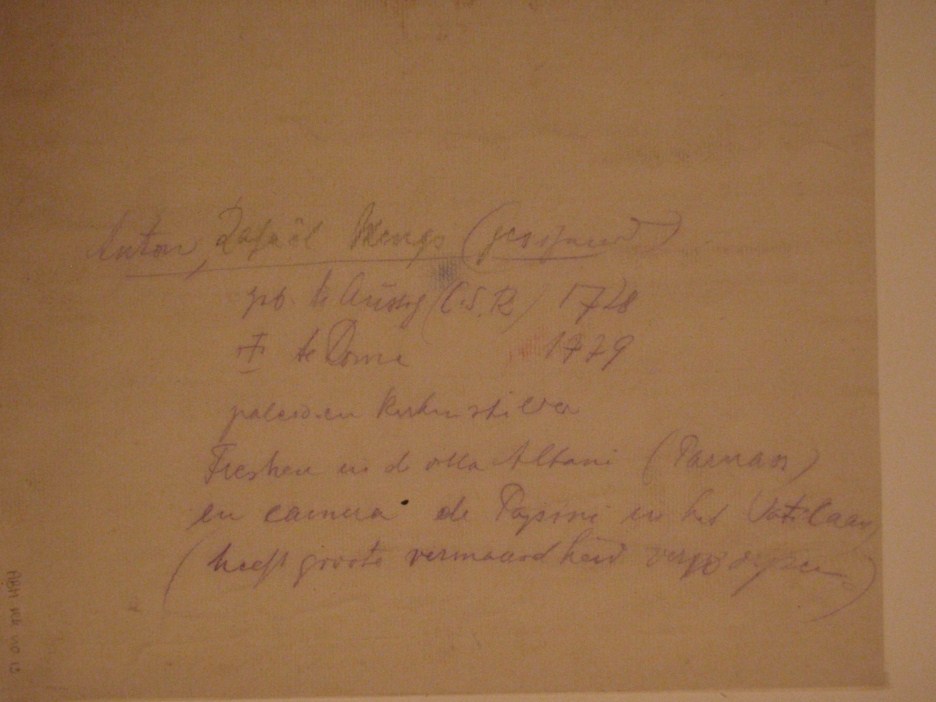 Anton, Rafaël Mengs (gesigneerd)
gb. te Aussig (C.S.R.) 1728
† te Rome 1779
paleis en
Fresken in d villa Albani (Parnas)
en camera de Papiri in het Vaticaan
(heeft groote vermaardheid